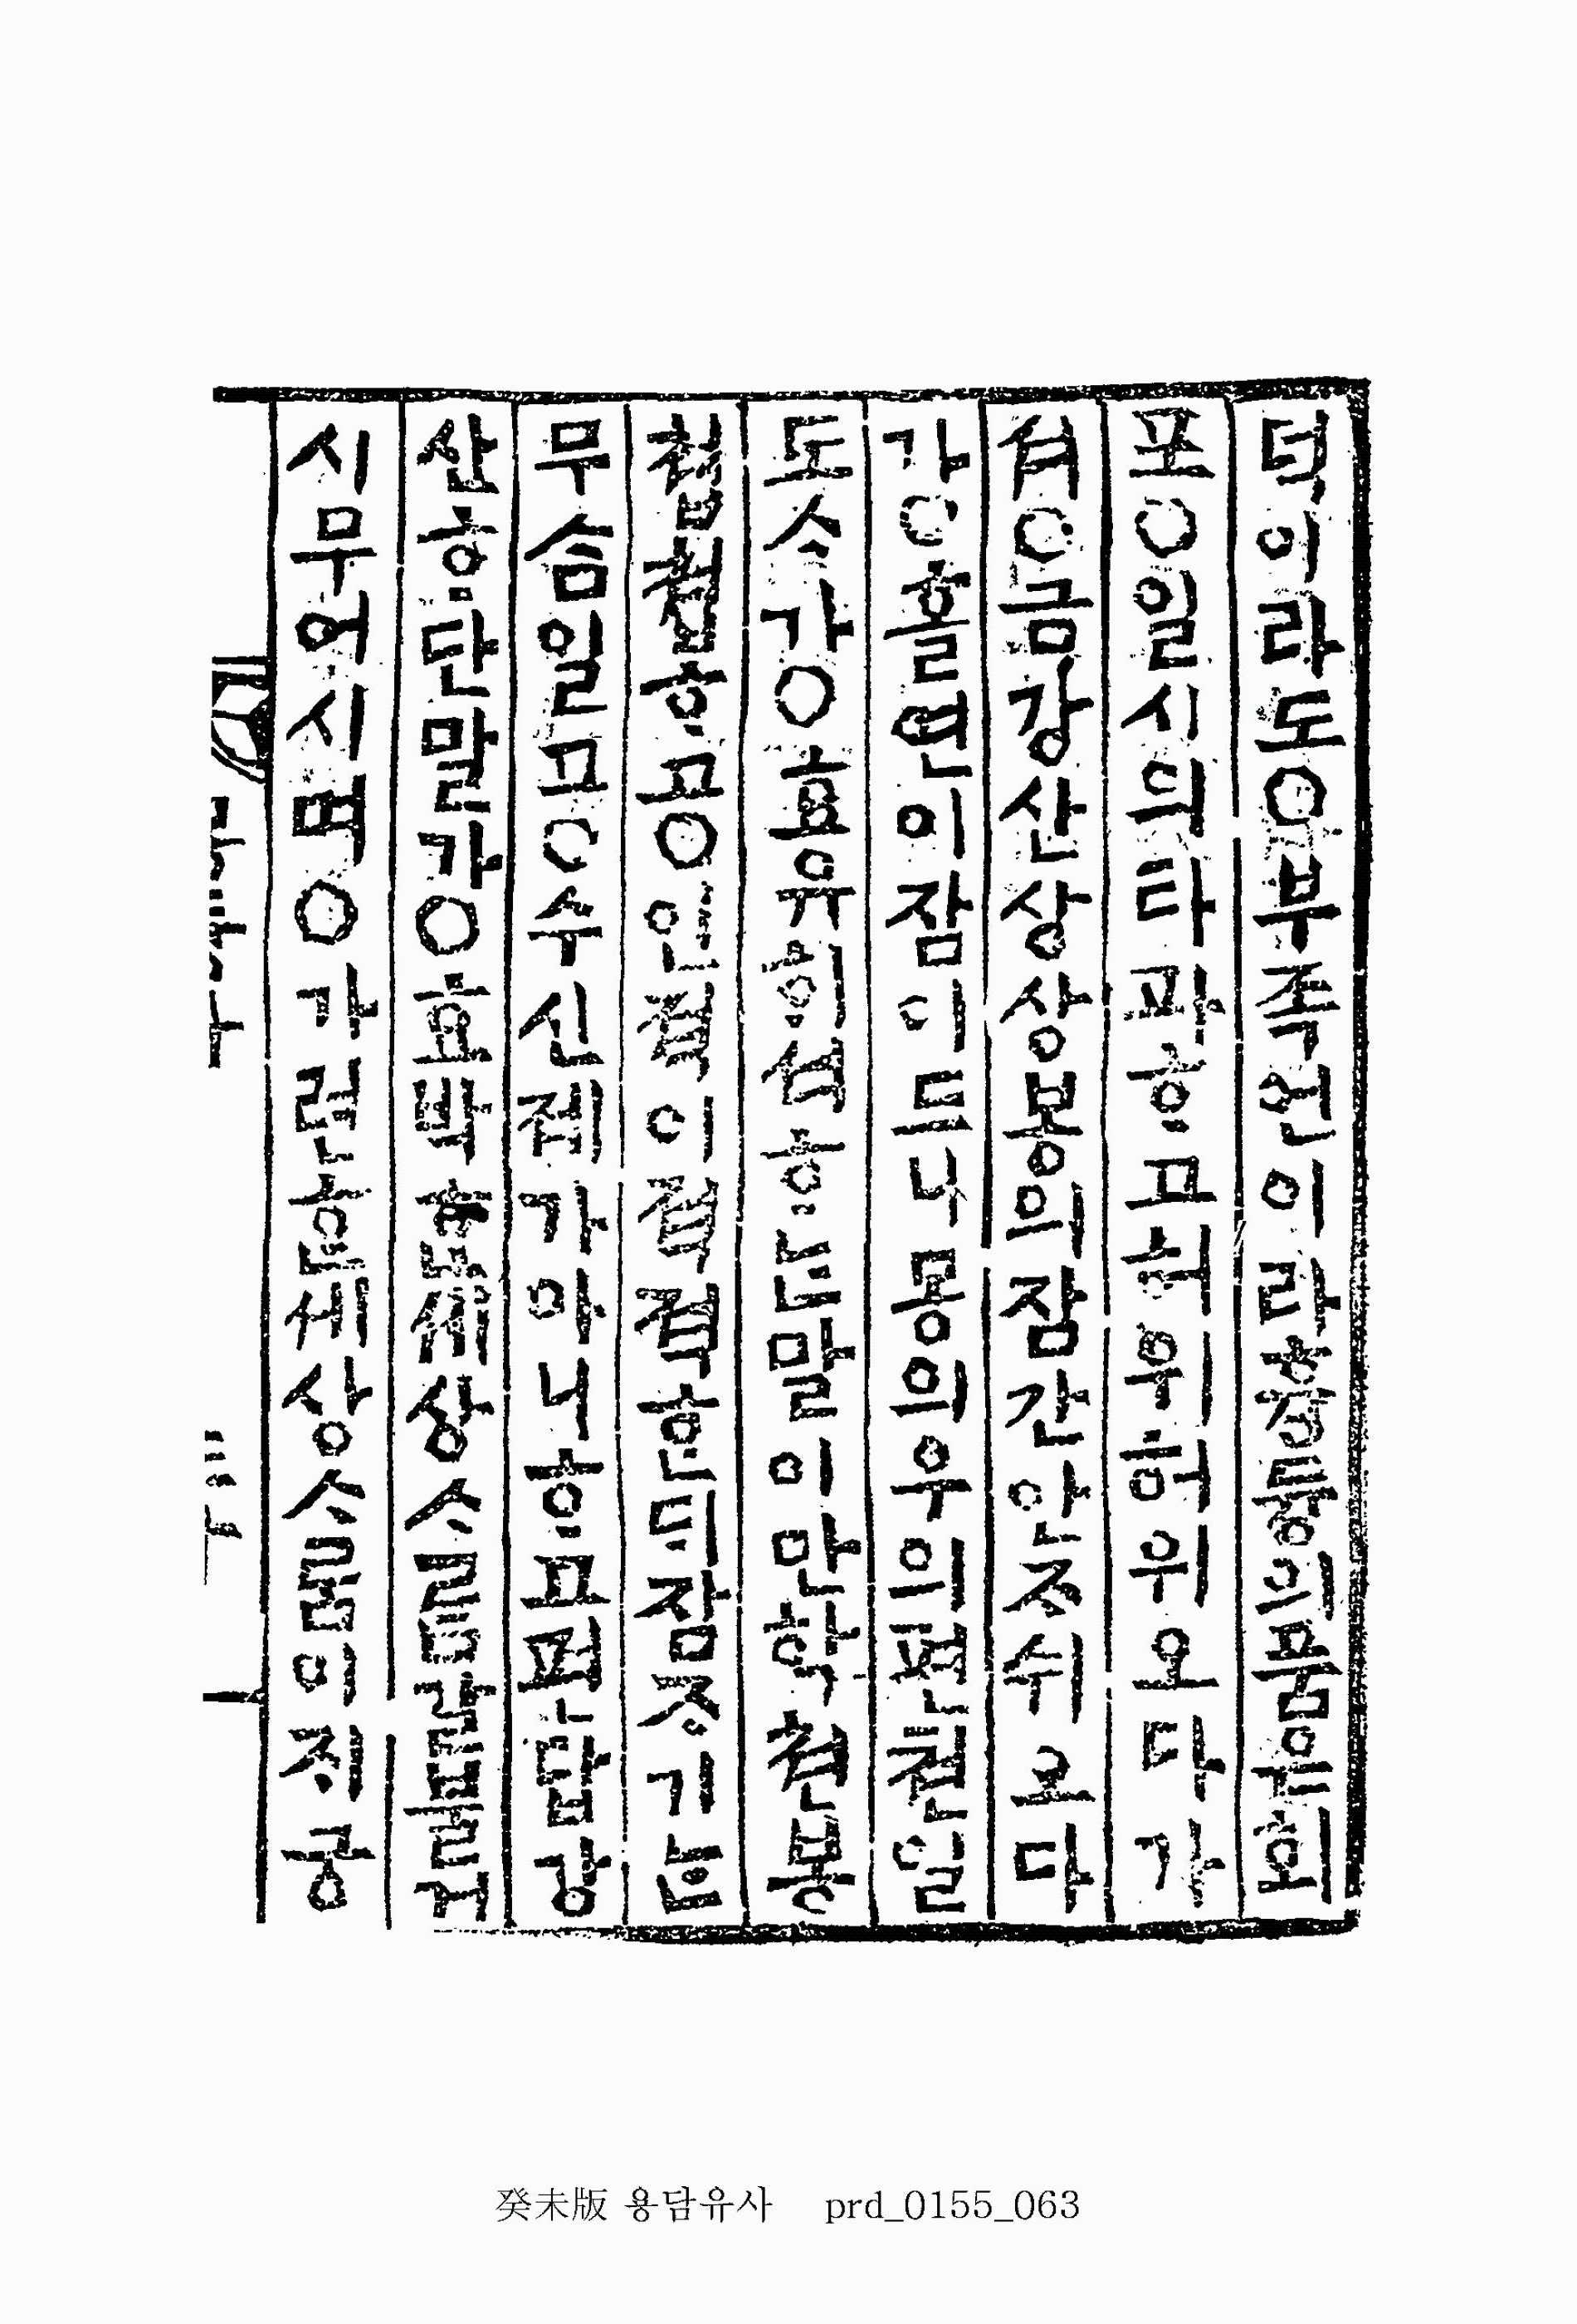 덕이라도○부족언이라흉즁의품은회
포○일시의타파ᄒᆞ고허위허위오다가
셔○금강산상상봉의잠간안ᄌᆞ쉬오다
가○홀연이잠이드니몽의우의편쳔일
도ᄉᆞ가○효유ᄒᆡ셔ᄒᆞ는말이만학쳔봉
쳡쳡ᄒᆞ고○인젹이젹젹ᄒᆞᆫᄃᆡ잠ᄌᆞ기는
무슴일고○수신졔가아니ᄒᆞ고편답강
산ᄒᆞ단말가○효박ᄒᆞᆫ셰상ᄉᆞᄅᆞᆷ갈볼거
시무어시며○가련ᄒᆞᆫ셰상ᄉᆞᄅᆞᆷ이ᄌᆡ궁
癸未版 용담유사 prd_0155_063